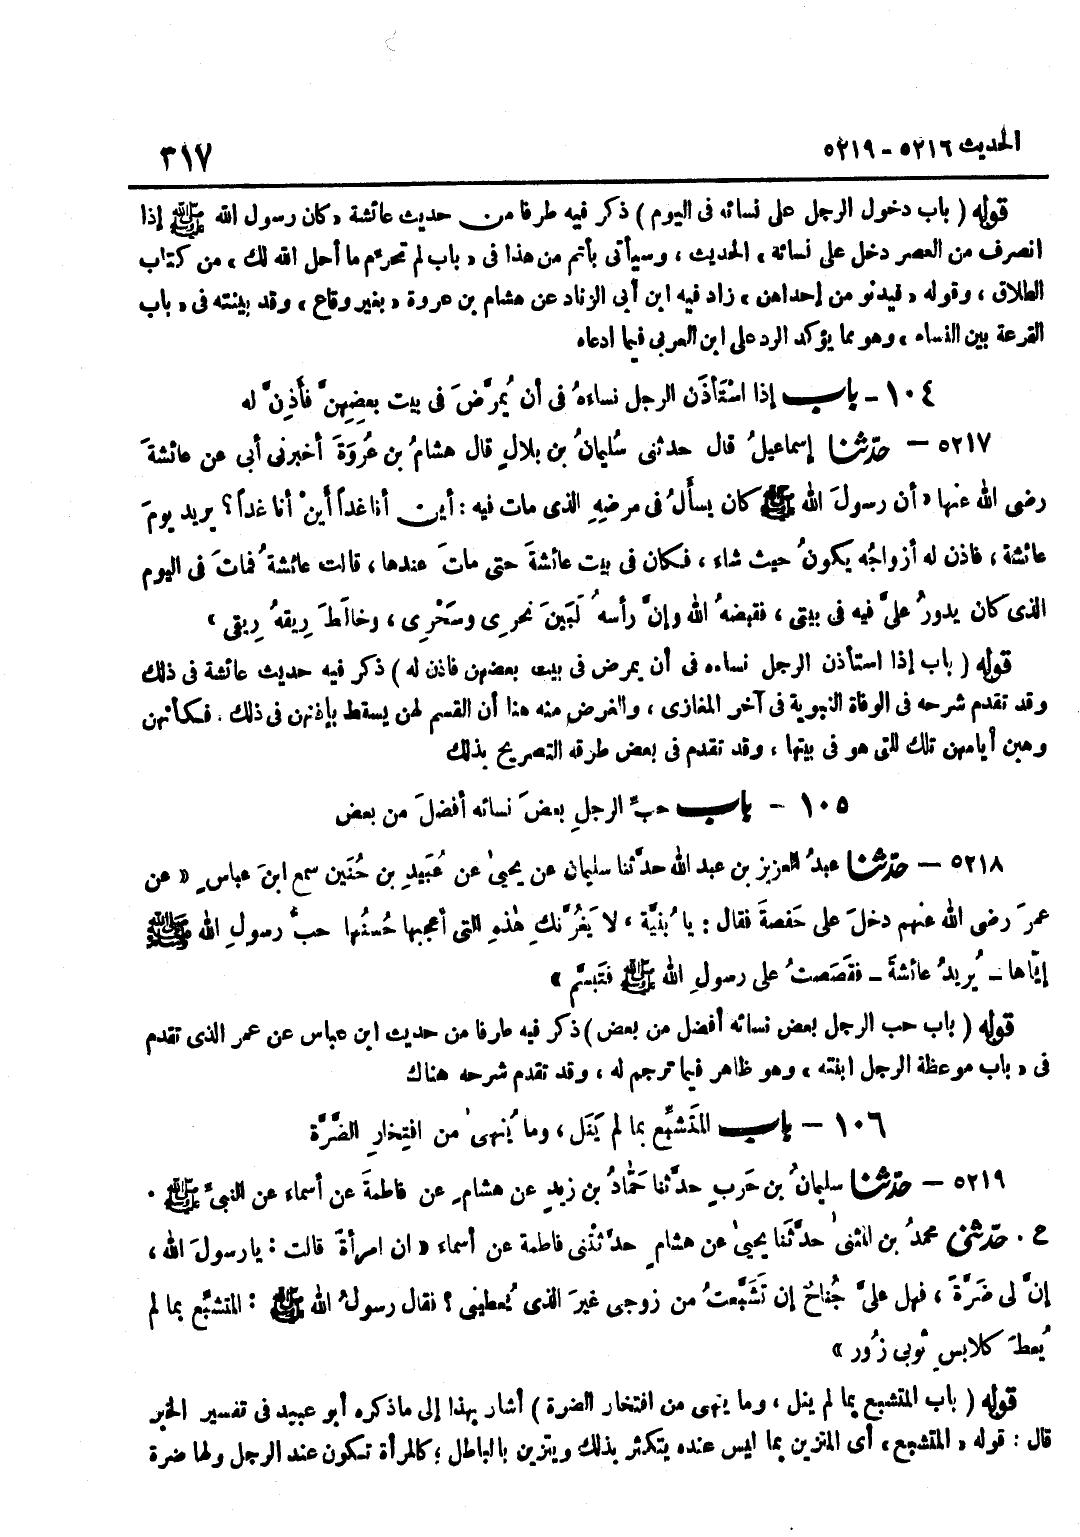 الحديث ٥٢١٦ - ٥٢١٩ ٣١٧
قوله ( باب دخول الرجل على نسائه فى اليوم ) ذكر فيه طرفا من حديث عائشة « كان رسول الله ﷺ إذا
انصرف من العصر دخل على نسائه » الحديث ، وسيأتى بأتم من هذا فى « باب لم تحرم ما أحل الله لك » من كتاب
الطلاق ، وقوله « فيدنو من إحداهن » زاد فيه ابن أبى الزناد عن هشام بن عروة « بغير وقاع » وقد بينته فى « باب
القرعة بين النساء » وهو مما يؤكد الرد على ابن العربى فيما ادعاه
١٠٤ - باب إذا اسْتَأذَن الرجل نساءهُ فى أن يُمرَّضَ فى بيت بعضِهِنَّ فأَذِنَّ له
٥٢١٧ - حدّثنا إسماعيلُ قال حدثنى سُليمانُ بن بلالٍ قال هشامُ بن عُروَةَ أخبرنى أبى عن عائشةَ
رضى الله عنها « أن رسولَ الله ﷺ كان يسألُ فى مرضهِ الذى مات فيه : أين أنا غداً أينْ أنا غداً ؟ يريد يومَ
عائشة ، فاذن له أزواجُه يكونُ حيث شاء ، فكان فى بيت عائشةَ حتى ماتَ عندها ، قالت عائشةُ فماتَ فى اليوم
الذى كان يدورُ علىَّ فيه فى بيتى ، فقبضهُ الله وإنَّ رأسهُ لَبَينَ نحرِى وسَحْرِى ، وخالَطَ رِيقهُ رِيقى »
قوله ( باب إذا استأذن الرجل نساءه فى أن يمرض فى بيت بعضهن فاذن له ) ذكر فيه حديث عائشة فى ذلك
وقد تقدم شرحه فى الوفاة النبوية فى آخر المغازى ، والغرض منه هنا أن القسم لهن يسقط بإذنهن فى ذلك . فكأنهن
وهبن أيامهن تلك للتى هو فى بيتها ، وقد تقدم فى بعض طرقه التصريح بذلك
١٠٥ - باب حبِّ الرجلِ بعضَ نسائه أفضلَ من بعض
٥٢١٨ - حدّثنا عبدُ العزيز بن عبد الله حدَّثنا سليمان عن يحيىٰ عن عُبَيدِ بن حُنَين سمع ابنَ عباسٍ « عن
عمرَ رضى الله عنهم دخلَ على حَفصةَ فقال : يا بُنيَّة ، لا يَغُرَّنكِ هٰذهِ التى أعجبها حُسنُها حبُّ رسولِ الله ﷺ
إيّاها ـ يُريدُ عائشةَ ـ فقَصَصتُ على رسولِ الله ﷺ فتَبسَّم »
قوله ( باب حب الرجل بعض نسائه أفضل من بعض ) ذكر فيه طرفا من حديث ابن عباس عن عمر الذى تقدم
فى « باب موعظة الرجل ابنته » وهو ظاهر فيما ترجم له ، وقد تقدم شرحه هناك
١٠٦ - باب المتَشبِّع بما لم يَنَل ، وما يُنهىٰ من افتِخارِ الضَّرَّة
٥٢١٩ - حدّثنا سليمانُ بن حَربٍ حدَّثنا حَمّادُ بن زيدٍ عن هشامٍ عن فاطمةَ عن أسماء عن النبىِّ ﷺ .
ح . حدّثنى محمدُ بن المثنىٰ حدَّثَنا يحيىٰ عن هشامٍ حدَّثتْنى فاطمة عن أسماء « ان امرأةً قالت : يا رسولَ الله ،
إنَّ لى ضَرَّةً ، فهل علىَّ جُناحٌ إن تَشَبَّعتُ من زوجى غيرَ الذى يُعطينى ؟ فقال رسولُ الله ﷺ : المتشبَّع بما لم
يُعطَ كلابسِ ثوبى زُور »
قوله ( باب المتشبع بما لم ينل ، وما ينهى من افتخار الضرة ) أشار بهذا إلى ماذكره أبو عبيد فى تفسير الخبر
قال : قوله « المتشبع » أى المتزين بما ليس عنده يتكثر بذلك ويتزين بالباطل ؛ كالمرأة تكون عند الرجل ولها ضرة